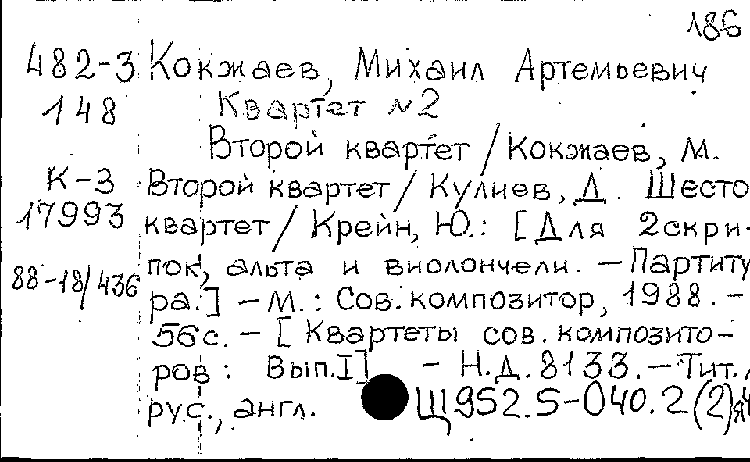 186
482-3 Кокжаев, Михаил Артемьевич
148 Квартет №2
Второй квартет / Кокжаев, М.
К-3 Второй квартет / Кулиев, Д. Шесто
17993 квартет / Крейн, Ю.: [Для 2 скри-
88-18/436 пок, альта и виолончели. — Партиту
ра.] — М.: Сов. композитор, 1988. —
56 с. — [Квартеты сов. композито-
ров: Вып. I] — Н.Д. 8133. — Тит.,
рус., англ. Щ952.5-040.2(2)я4